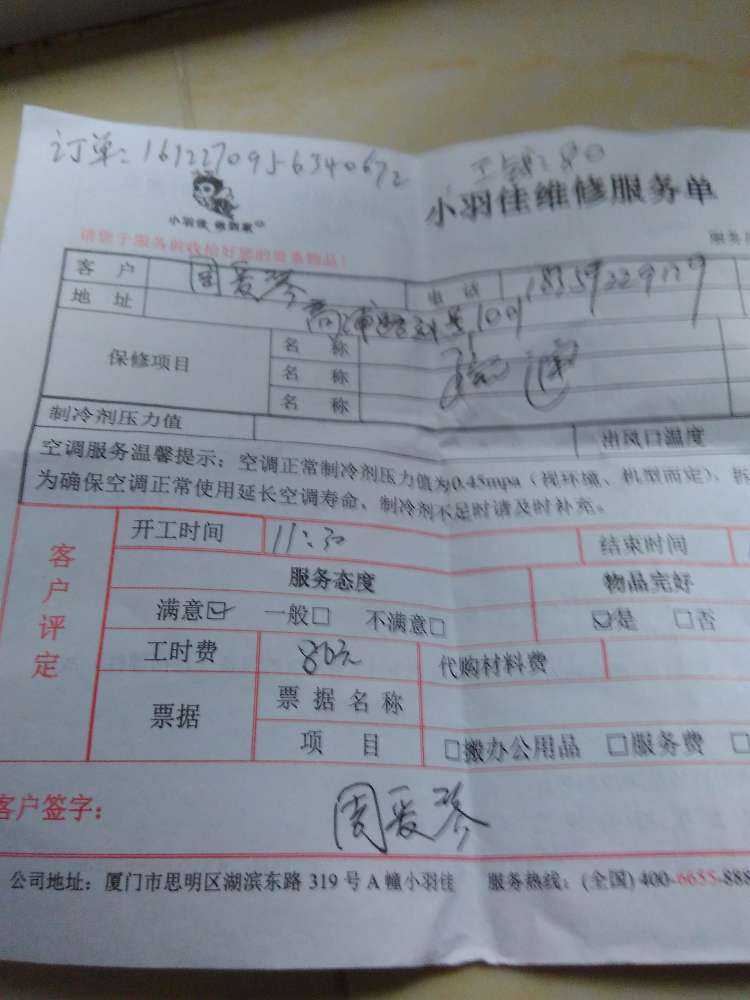 订单:1612270956340672
小羽佳 做到家
小羽佳维修服务单
请您于服务前收拾好您的贵重物品!
服务
客 户 周爱琴 电 话 18359229179
地 址 1001
保修项目 名 称
名 称
名 称
制冷剂压力值 出风口温度
空调服务温馨提示:空调正常制冷剂压力值为0.45mpa(视环境、机型而定),拆
为确保空调正常使用延长空调寿命,制冷剂不足时请及时补充。
客户评定
开工时间 11:30 结束时间
服务态度 物品完好
满意☑ 一般□ 不满意□ ☑是 □否
工时费 80元 代购材料费
票据 票 据 名 称
项 目 □搬办公用品 □服务费 □
客户签字: 周爱琴
公司地址:厦门市思明区湖滨东路 319 号 A 幢小羽佳 服务热线:(全国) 400-6655-888